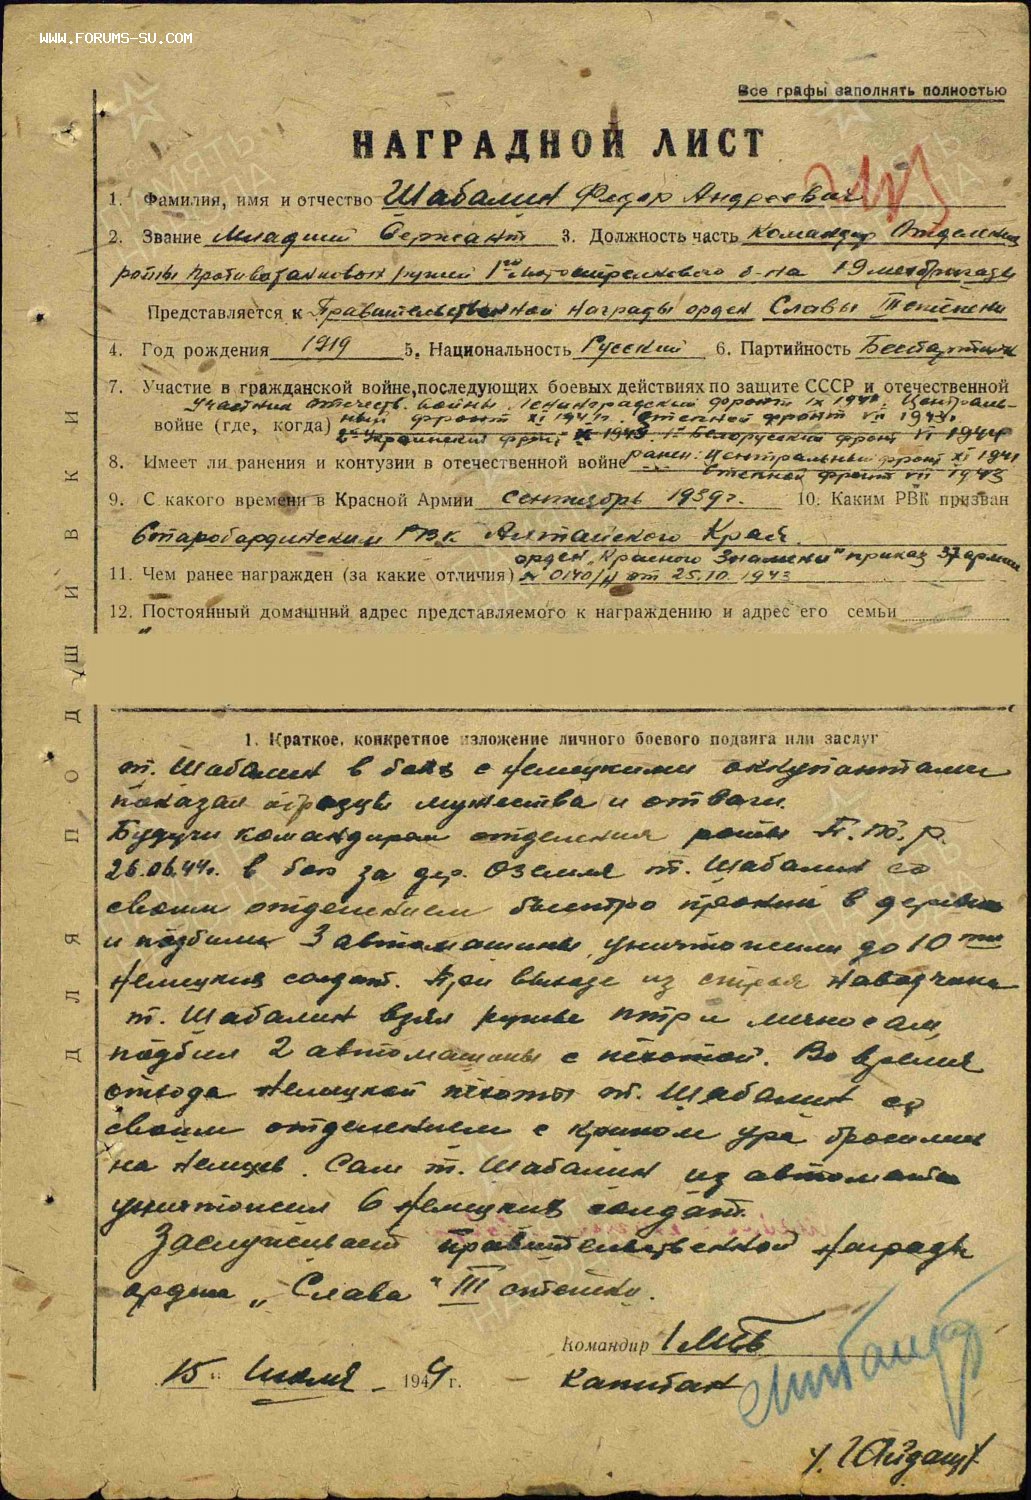 WWW.FORUMS-SU.COM
Все графы заполнять полностью
НАГРАДНОЙ ЛИСТ
1. Фамилия, имя и отчество Шабалин Федор Андреевич
2. Звание Младший Сержант 3. Должность часть Командир Отделения
роты противотанковых ружей 1го мотострелкового б-на 19 мехбригады
Представляется к Правительственной награды орден Славы III степени
4. Год рождения 1919 5. Национальность Русский 6. Партийность Беспартийн
7. Участие в гражданской войне, последующих боевых действиях по защите СССР и отечественной
Участник отечеств. войны. Ленинградский фронт IX 1941. Централь-
войне (где, когда) ный фронт XI 1941г. Степной фронт VII 1943г.
2й Украинский фронт X 1943. 1й Белорусский фронт VI 1944
8. Имеет ли ранения и контузии в отечественной войне ранен: Центральный фронт XI 1941
Степной фронт VII 1943
9. С какого времени в Красной Армии сентябрь 1939г. 10. Каким РВК призван
Старобардинским РВК Алтайского Края.
орден „Красного Знамени" приказ 37 армии
11. Чем ранее награжден (за какие отличия) № 0140/н от 25.10.1943
12. Постоянный домашний адрес представляемого к награждению и адрес его семьи
ДЛЯ ПОДШИВКИ
1. Краткое, конкретное изложение личного боевого подвига или заслуг
т. Шабалин в боях с немецкими оккупантами
показал образцы мужества и отваги.
Будучи командиром отделения роты П.Т.Р.
26.06.44г. в бою за дер. Оземля т. Шабалин со
своим отделением быстро проник в деревню
и подбили 3 автомашины, уничтожили до 10ти
немецких солдат. При выходе из строя наводчика
т. Шабалин взял ружье птр и лично сам,
подбил 2 автомашины с пехотой. Во время
отхода немецкой пехоты т. Шабалин со
своим отделением с криком ура бросились
на немцев. Сам т. Шабалин из автомата
уничтожил 6 немецких солдат.
Заслуживает правительственной награды
ордена „Слава" III степени.
Командир 1 МСБ
15 Июля 1944 г. Капитан